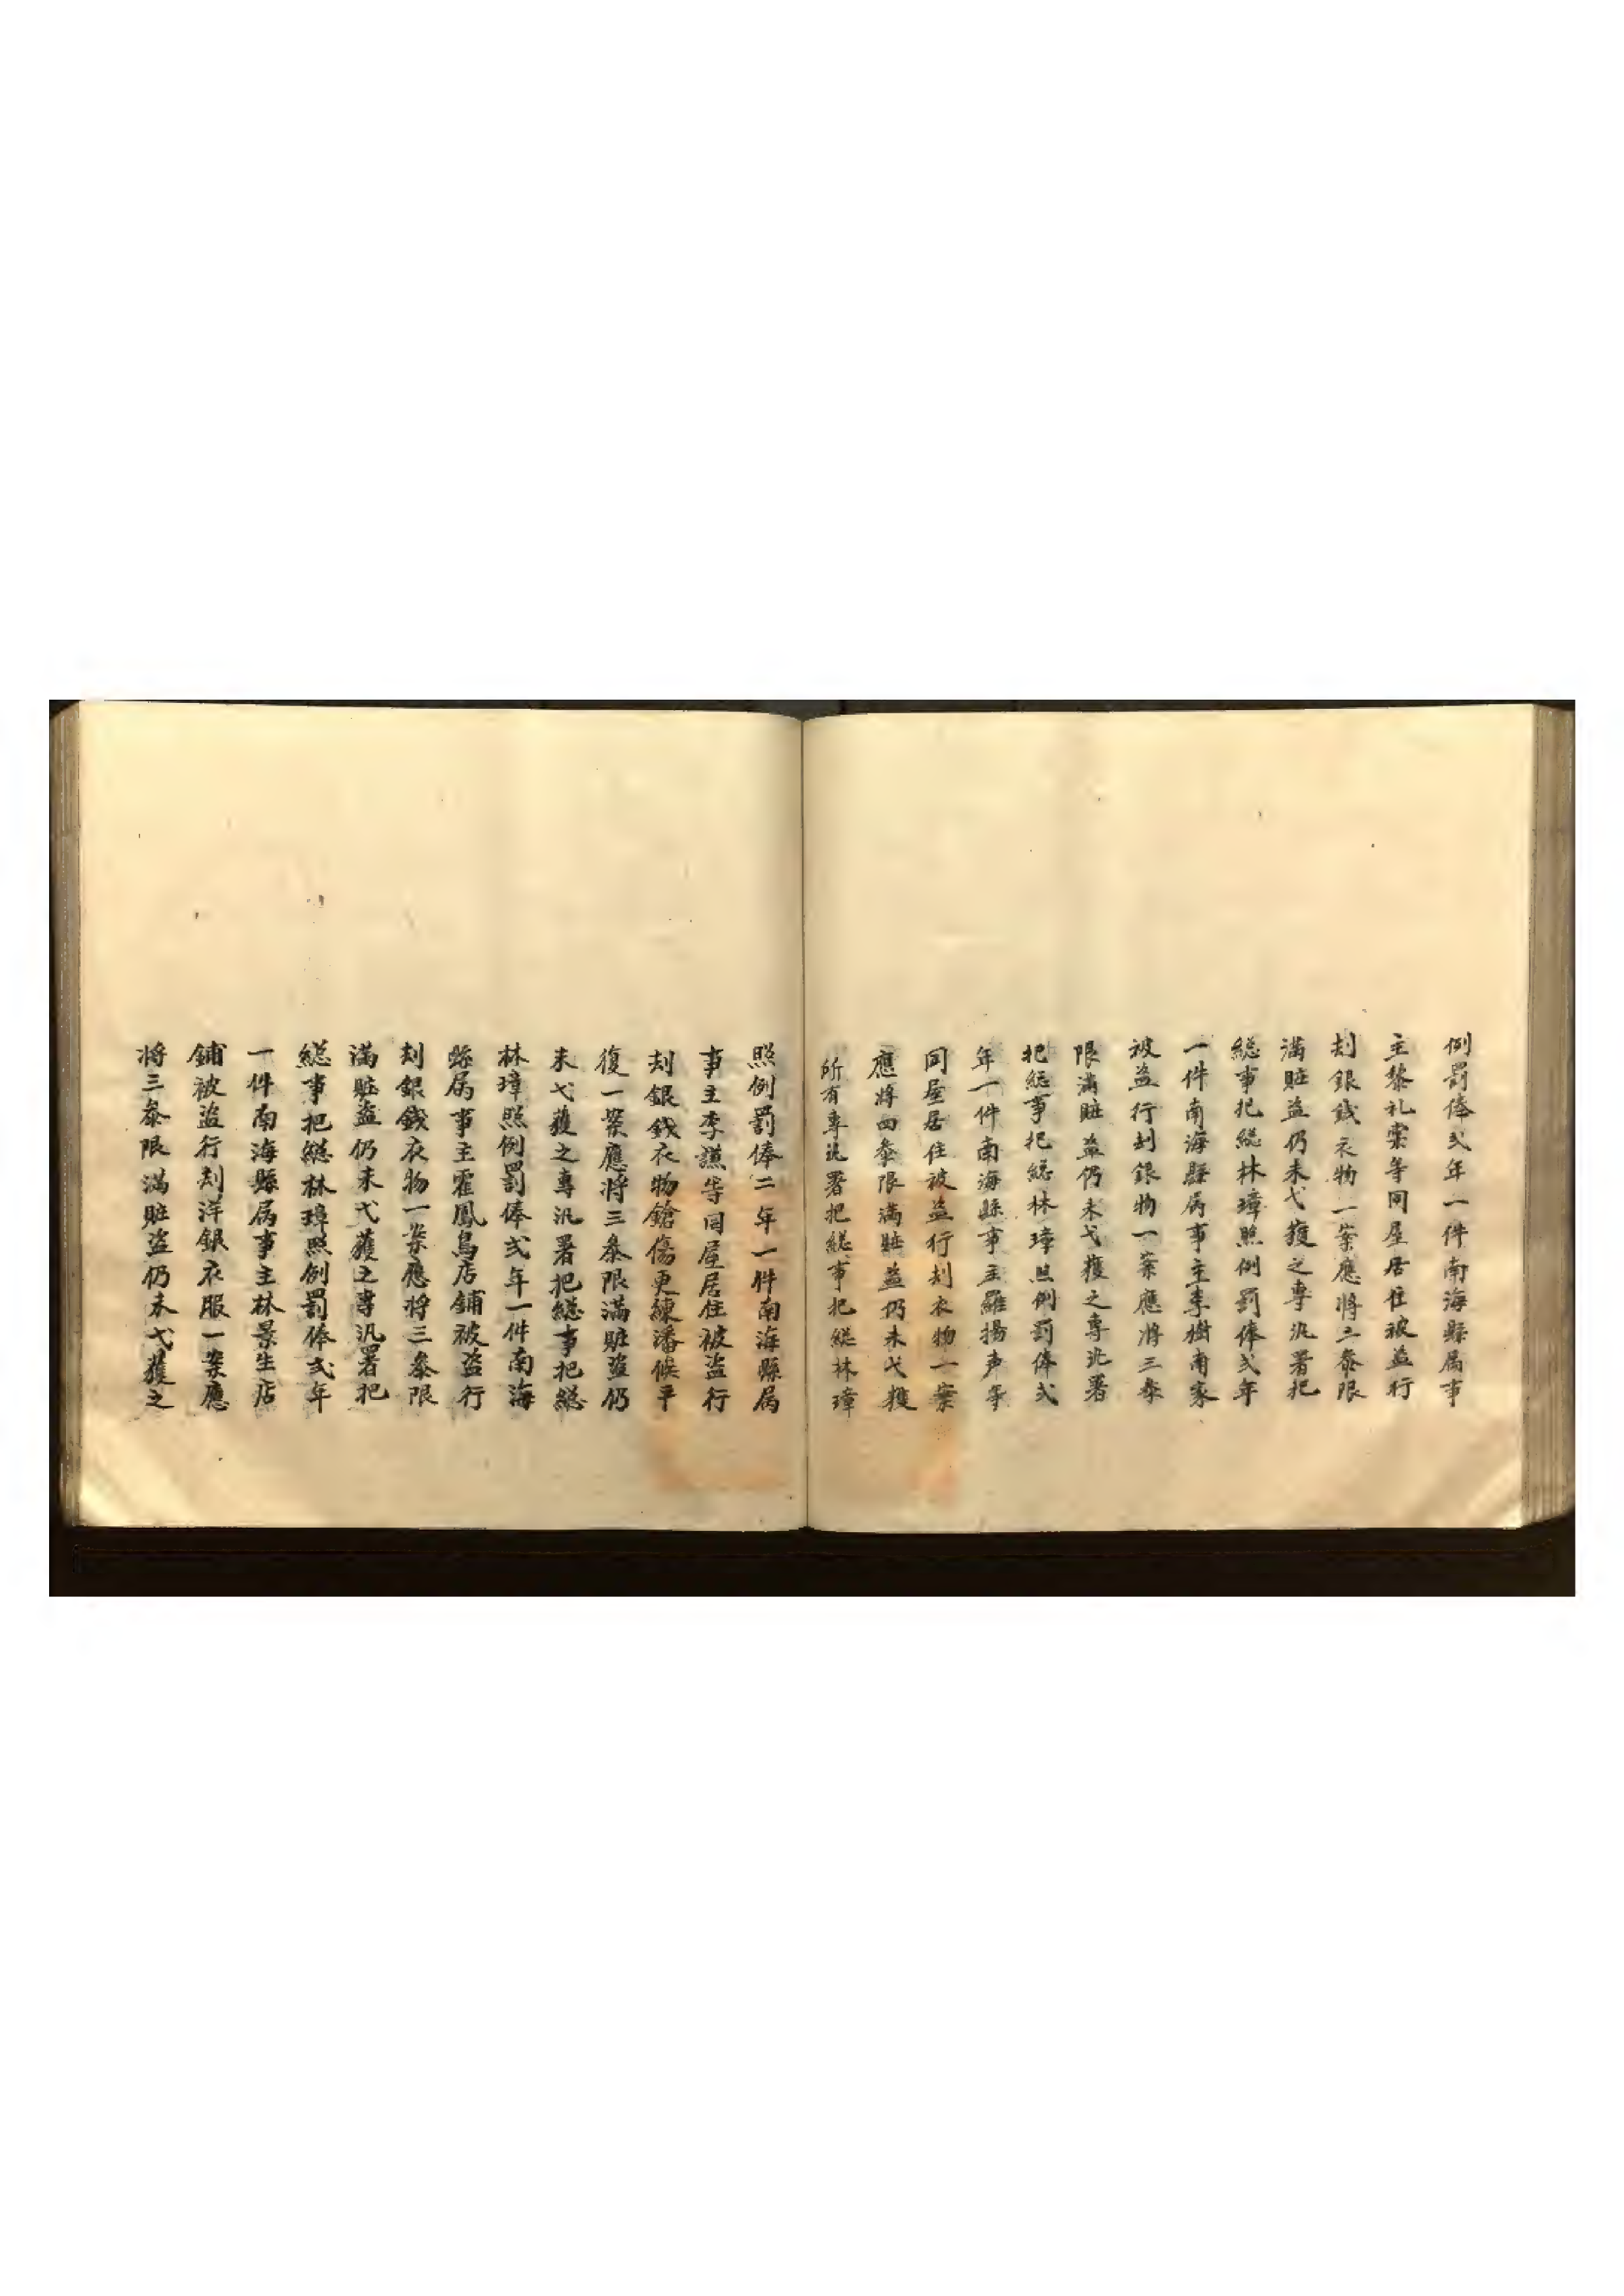 例罰俸弍年一件南海縣属事
主黎礼崇等同屋居住被盗行
刦銀錢衣物一案應將二叅限
滿賍盗仍未弋獲之專汛署把
緫事把緫林璋照例罰俸弍年
一件南海縣属事主李樹南家
被盗行刦銀物一案應將三叅
限滿賍盗仍未弋獲之專汛署
把緫事把緫林璋照例罰俸弍
年一件南海縣事主羅揚声等
同屋居住被盗行刦衣物一案
應將四叅限滿賍盗仍未弋獲
所有專汛署把緫事把緫林璋
照例罰俸二年一件南海縣属
事主李讌等同屋居住被盗行
刦銀錢衣物鎗傷更練潘候平
復一案應將三叅限滿賍盗仍
未弋獲之專汛署把緫事把緫
林璋照例罰俸弍年一件南海
縣属事主霍鳳烏店鋪被盗行
刦銀錢衣物一案應将三叅限
滿賍盗仍未弋獲之專汛署把
緫事把緫林璋照例罰俸弍年
一件南海縣属事主林景生店
鋪被盗行刦洋銀衣服一案應
將三叅限滿賍盗仍未弋獲之